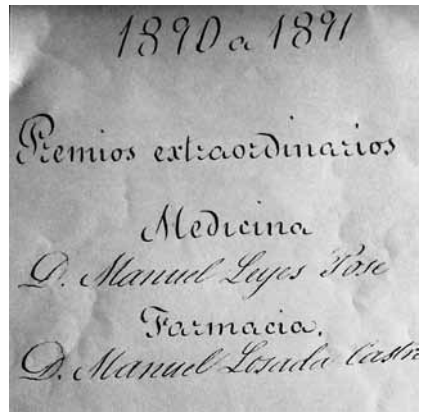 1890 a 1891
Premios extraordinarios
Medicina
D. Manuel Leyes Pose
Farmacia.
D. Manuel Losada Castr